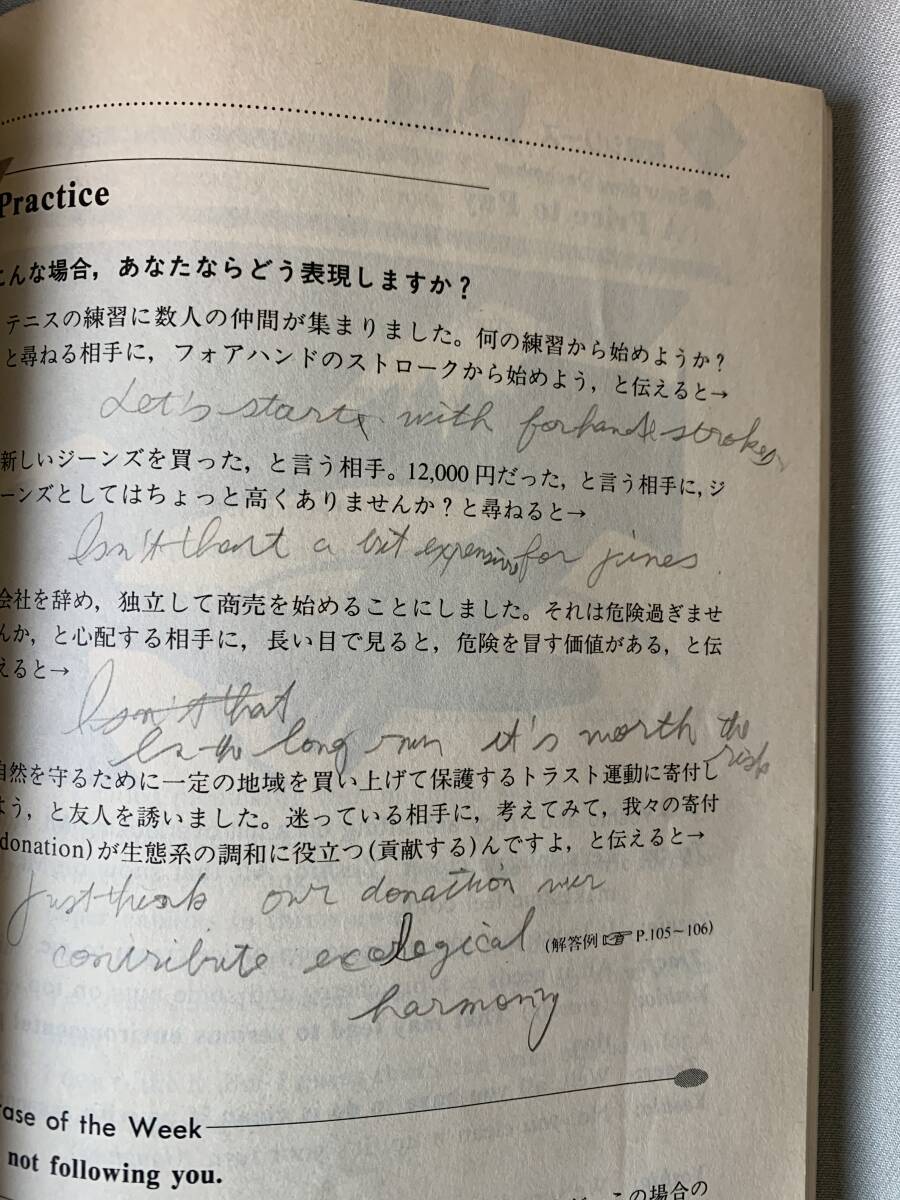 Practice
こんな場合，あなたならどう表現しますか？
テニスの練習に数人の仲間が集まりました。何の練習から始めようか？
と尋ねる相手に，フォアハンドのストロークから始めよう，と伝えると→
Let's start with forhand strokes
新しいジーンズを買った，と言う相手。12,000円だった，と言う相手に，ジ
ーンズとしてはちょっと高くありませんか？と尋ねると→
Isn't that a bit expensive for jines
会社を辞め，独立して商売を始めることにしました。それは危険過ぎませ
んか，と心配する相手に，長い目で見ると，危険を冒す価値がある，と伝
えると→
Isn't that
In the long run it's worth the
risk
自然を守るために一定の地域を買い上げて保護するトラスト運動に寄付し
よう，と友人を誘いました。迷っている相手に，考えてみて，我々の寄付
(donation)が生態系の調和に役立つ(貢献する)んですよ，と伝えると→
Just think our donation
contribute ecological
(解答例☞P.105～106)
harmony
rase of the Week
not following you.
この場合の